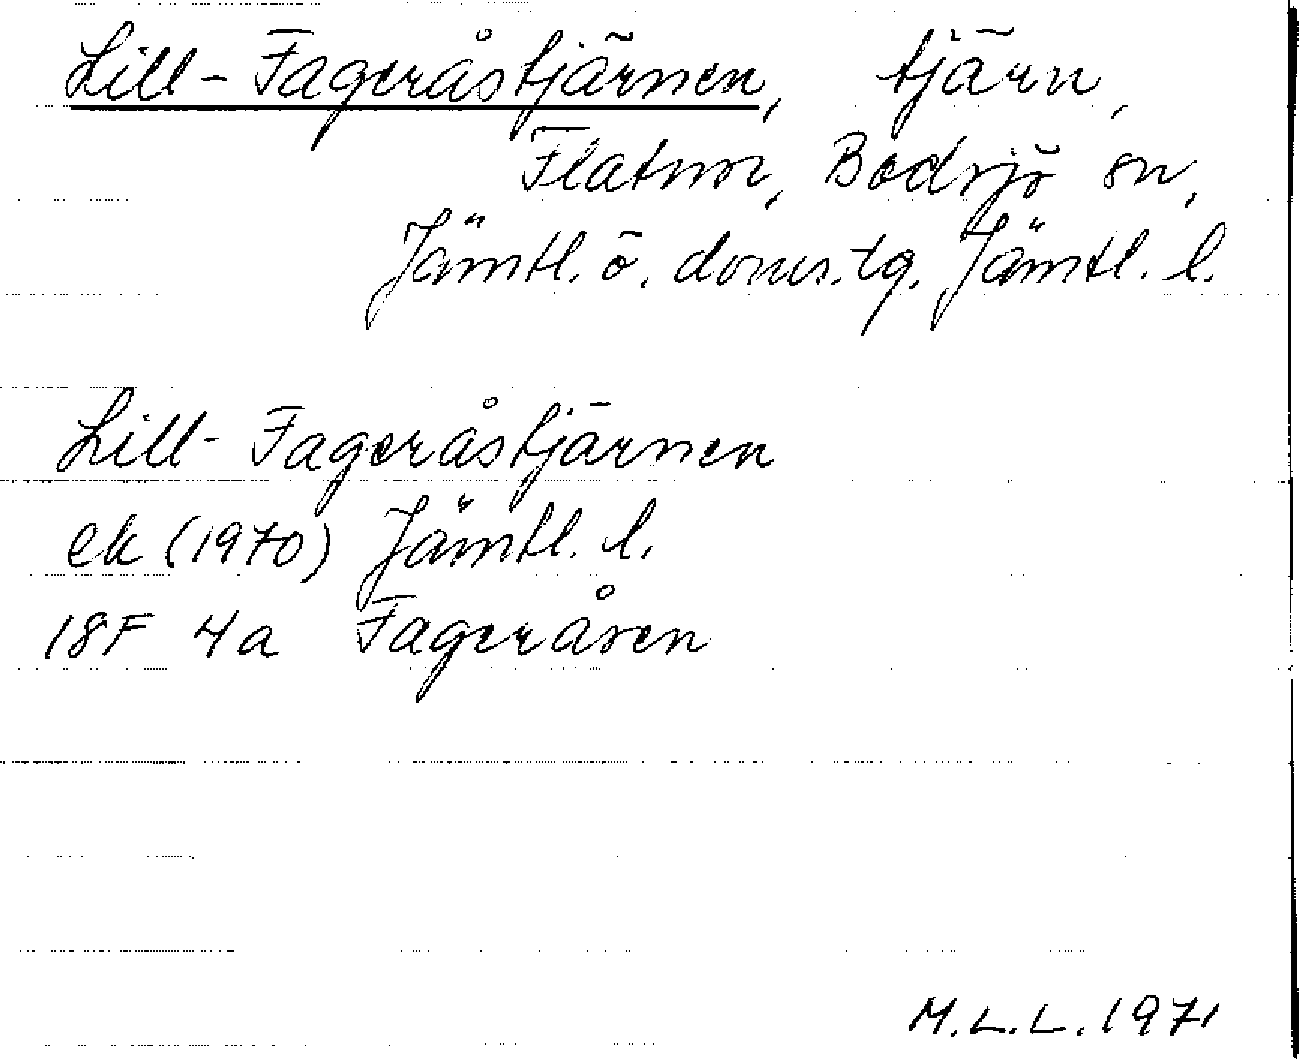 Lill-Fageråstjärnen, tjärn,
Flatnor, Bodsjö sn,
Jämtl. ö. doms.tg. Jämtl. l.
Lill-Fageråstjärnen
ek (1970) Jämtl. l.
18F 4a Fageråsen
M.L.L. 1971